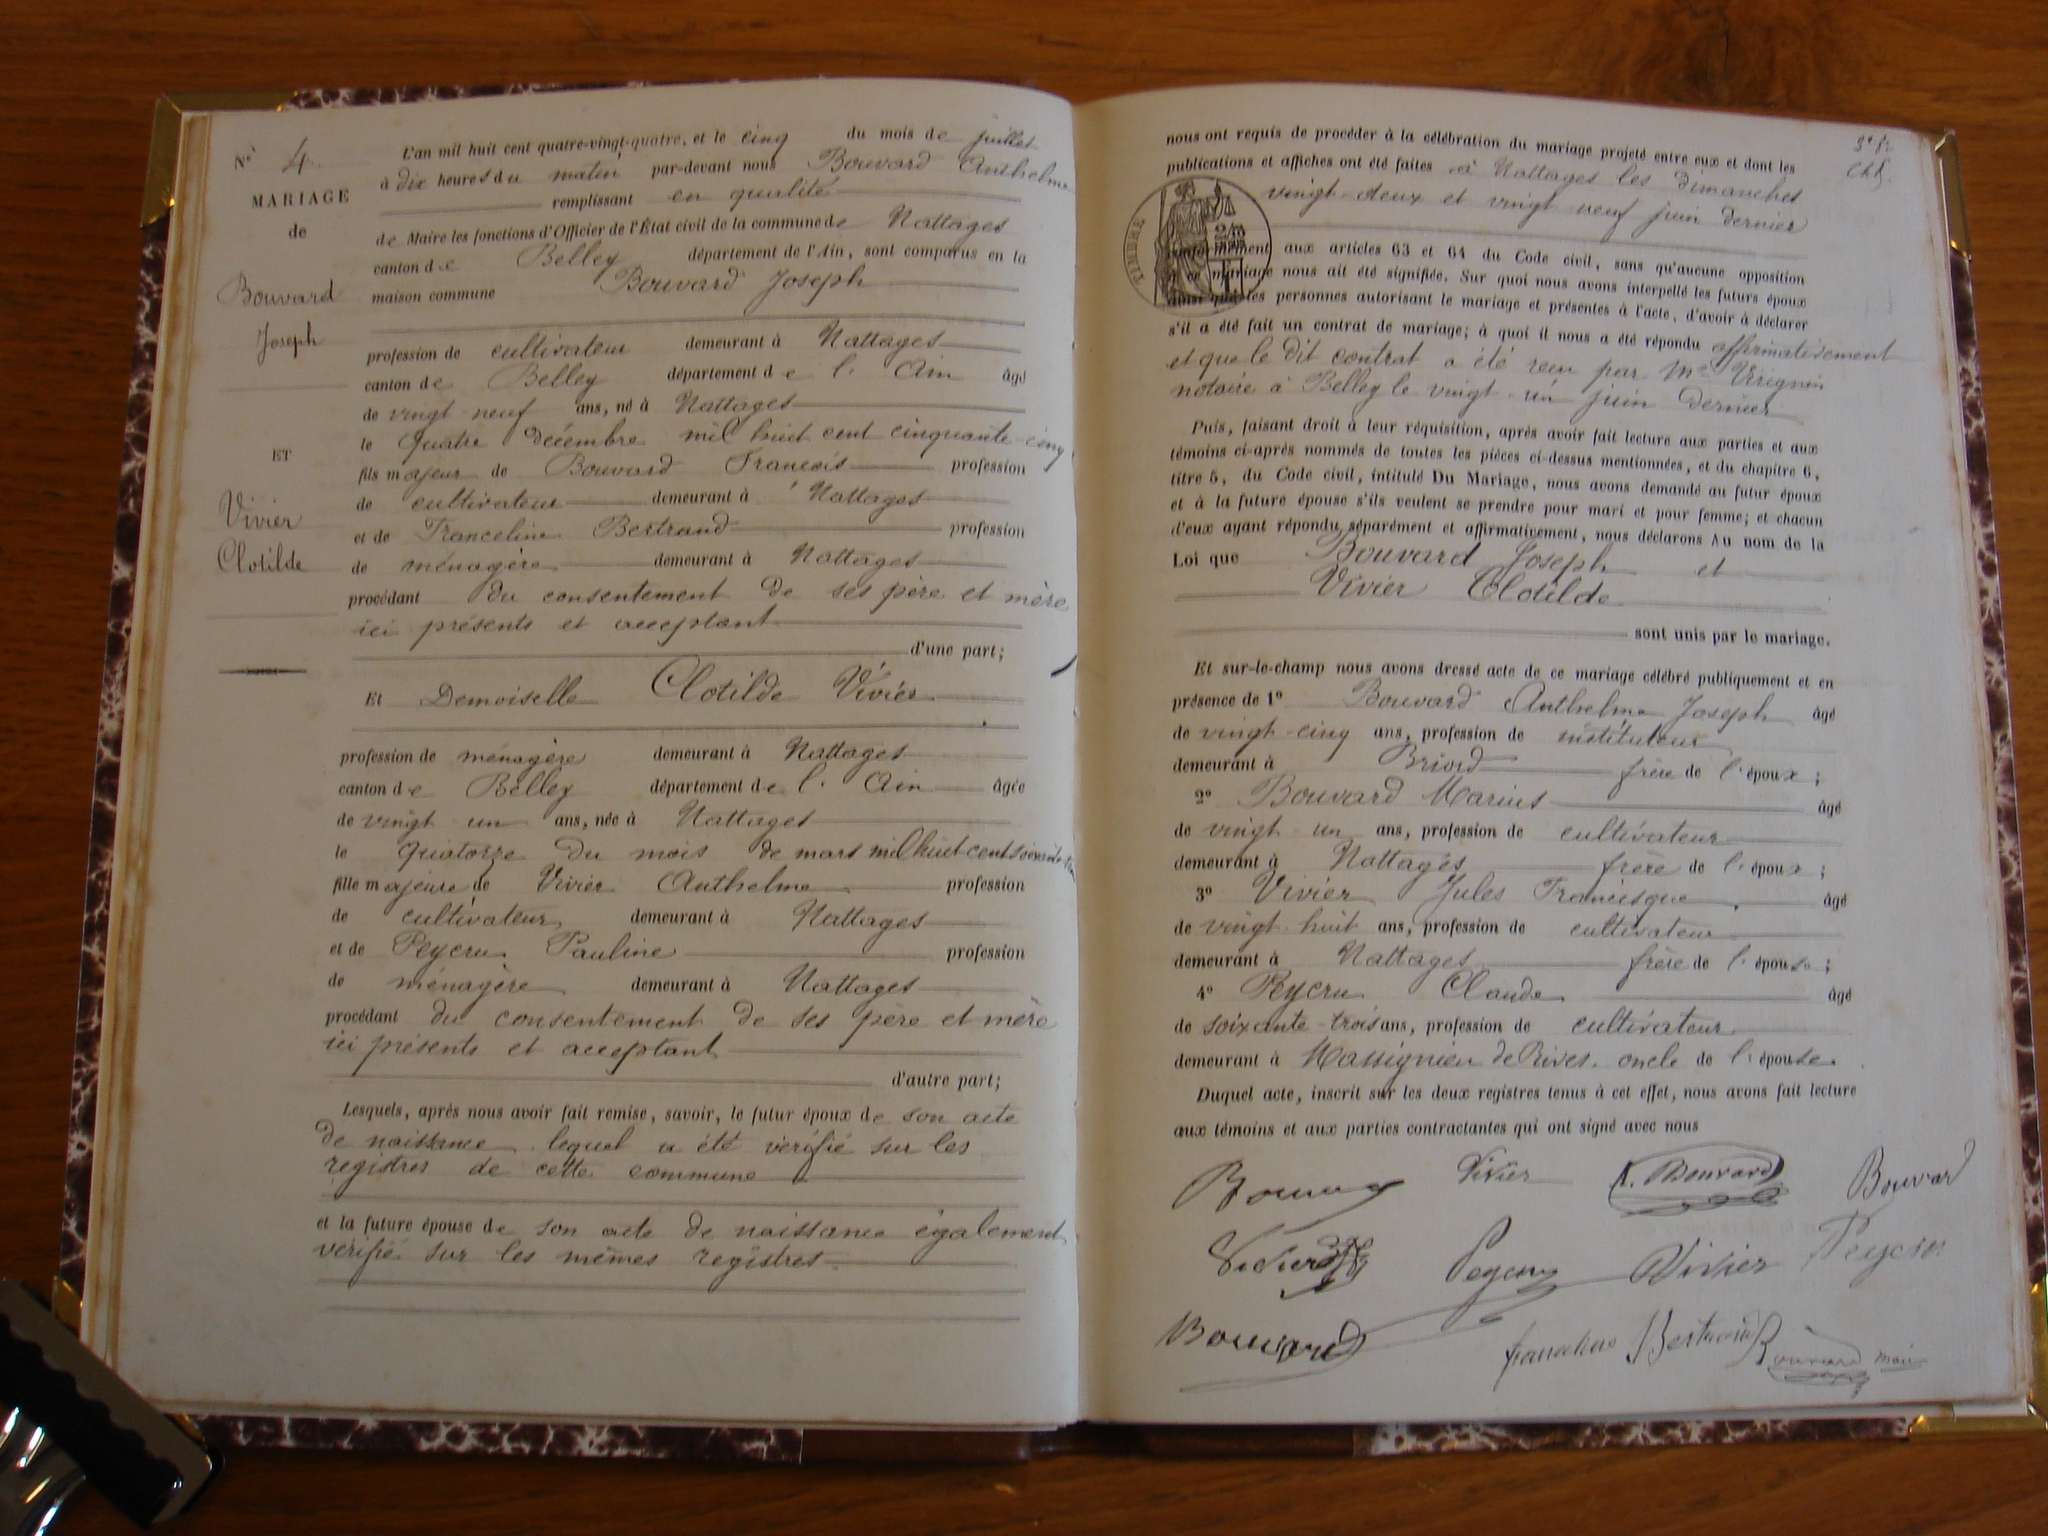 N° 4
MARIAGE
de
Bouvard
Joseph
ET
Vivier
Clotilde
L'an mil huit cent quatre-vingt-quatre, et le cinq du mois de juillet
à dix heures du matin par-devant nous Bouvard Anthelme
remplissant en qualité
de Maire les fonctions d'Officier de l'État civil de la commune de Nattages
canton de Belley département de l'Ain, sont comparus en la
maison commune Bouvard Joseph
profession de cultivateur demeurant à Nattages
canton de Belley département de l'Ain âgé
de vingt-neuf ans, né à Nattages
le quatre décembre mil huit cent cinquante-cinq
fils majeur de Bouvard François profession
de cultivateur demeurant à Nattages
et de Franceline Bertrand profession
de ménagère demeurant à Nattages
procédant du consentement de ses père et mère
ici présents et acceptant
d'une part;
Et Demoiselle Clotilde Vivier
profession de ménagère demeurant à Nattages
canton de Belley département de l'Ain âgée
de vingt un ans, née à Nattages
le quatorze du mois de mars mil huit cent
fille majeure de Vivier Anthelme profession
de cultivateur demeurant à Nattages
et de Peycru Pauline profession
de ménagère demeurant à Nattages
procédant du consentement de ses père et mère
ici présents et acceptant
d'autre part;
Lesquels, après nous avoir fait remise, savoir, le futur époux de son acte
de naissance lequel a été vérifié sur les
registres de cette commune
et la future épouse de son acte de naissance également
vérifié sur les mêmes registres
nous ont requis de procéder à la célébration du mariage projeté entre eux et dont les
publications et affiches ont été faites à Nattages les dimanches
vingt-deux et vingt neuf juin dernier
TIMBRE
aux articles 63 et 64 du Code civil, sans qu'aucune opposition
mariage nous ait été signifiée. Sur quoi nous avons interpellé les futurs époux
ainsi que les personnes autorisant le mariage et présentes à l'acte, d'avoir à déclarer
s'il a été fait un contrat de mariage; à quoi il nous a été répondu affirmativement
et que le dit contrat a été reçu par Me
notaire à Belley le vingt-un juin dernier
Puis, faisant droit à leur réquisition, après avoir fait lecture aux parties et aux
témoins ci-après nommés de toutes les pièces ci-dessus mentionnées, et du chapitre 6,
titre 5, du Code civil, intitulé Du Mariage, nous avons demandé au futur époux
et à la future épouse s'ils veulent se prendre pour mari et pour femme; et chacun
d'eux ayant répondu séparément et affirmativement, nous déclarons AU nom de la
Loi que Bouvard Joseph et
Vivier Clotilde
sont unis par le mariage.
Et sur-le-champ nous avons dressé acte de ce mariage célébré publiquement et en
présence de 1° Bouvard Anthelme Joseph âgé
de vingt-cinq ans, profession de instituteur
demeurant à Briord frère de l'époux;
2° Bouvard Marius âgé
de vingt un ans, profession de cultivateur
demeurant à Nattages frère de l'époux;
3° Vivier Jules Francisque âgé
de vingt-huit ans, profession de cultivateur
demeurant à Nattages frère de l'épouse;
4° Peycru Claude âgé
de soixante-trois ans, profession de cultivateur
demeurant à Massignieu de Rives oncle de l'épouse.
Duquel acte, inscrit sur les deux registres tenus à cet effet, nous avons fait lecture
aux témoins et aux parties contractantes qui ont signé avec nous
Vivier A. Bouvard Bouvard
Peycru Vivier Peycru
Bouvard Bertrand Bouvard maire